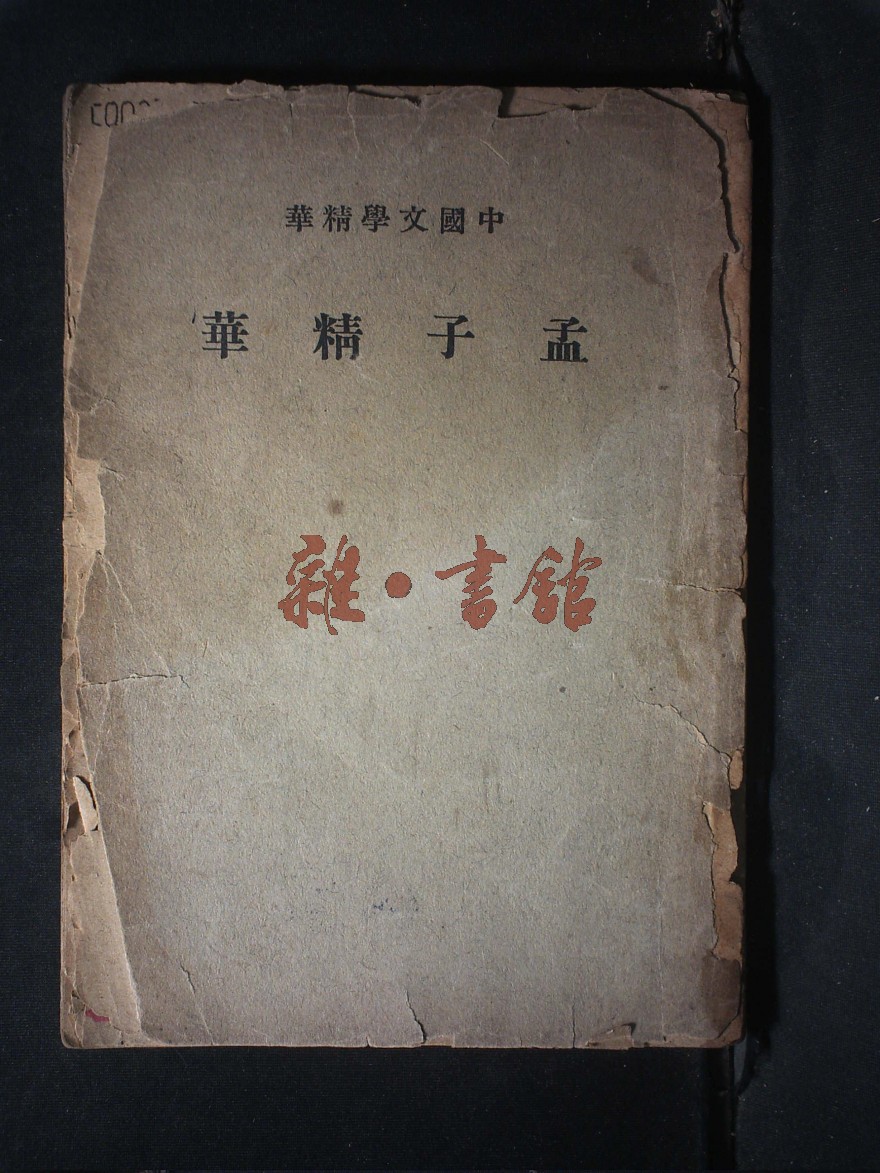 中國文學精華
孟子精華
雜·書館